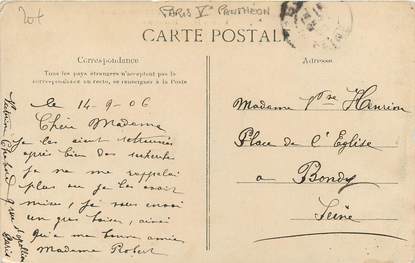 20f
PARIS Ve PANTHEON
CARTE POSTALE
Correspondance
Tous les pays étrangers n'acceptent pas la
correspondance au recto, se renseigner à la Poste
Adresse
le 14-9-06
Chère Madame
je les aient retrouvées
après bien des
je ne me rappelai
plus ou je les avait
mises, je vous envoi
un gros baiser, ainsi
qu'a ma bonne amie
Madame Robert
Madame Vve Henrion
Place de l'Eglise
a Bondy
Seine
9 rue
Paris